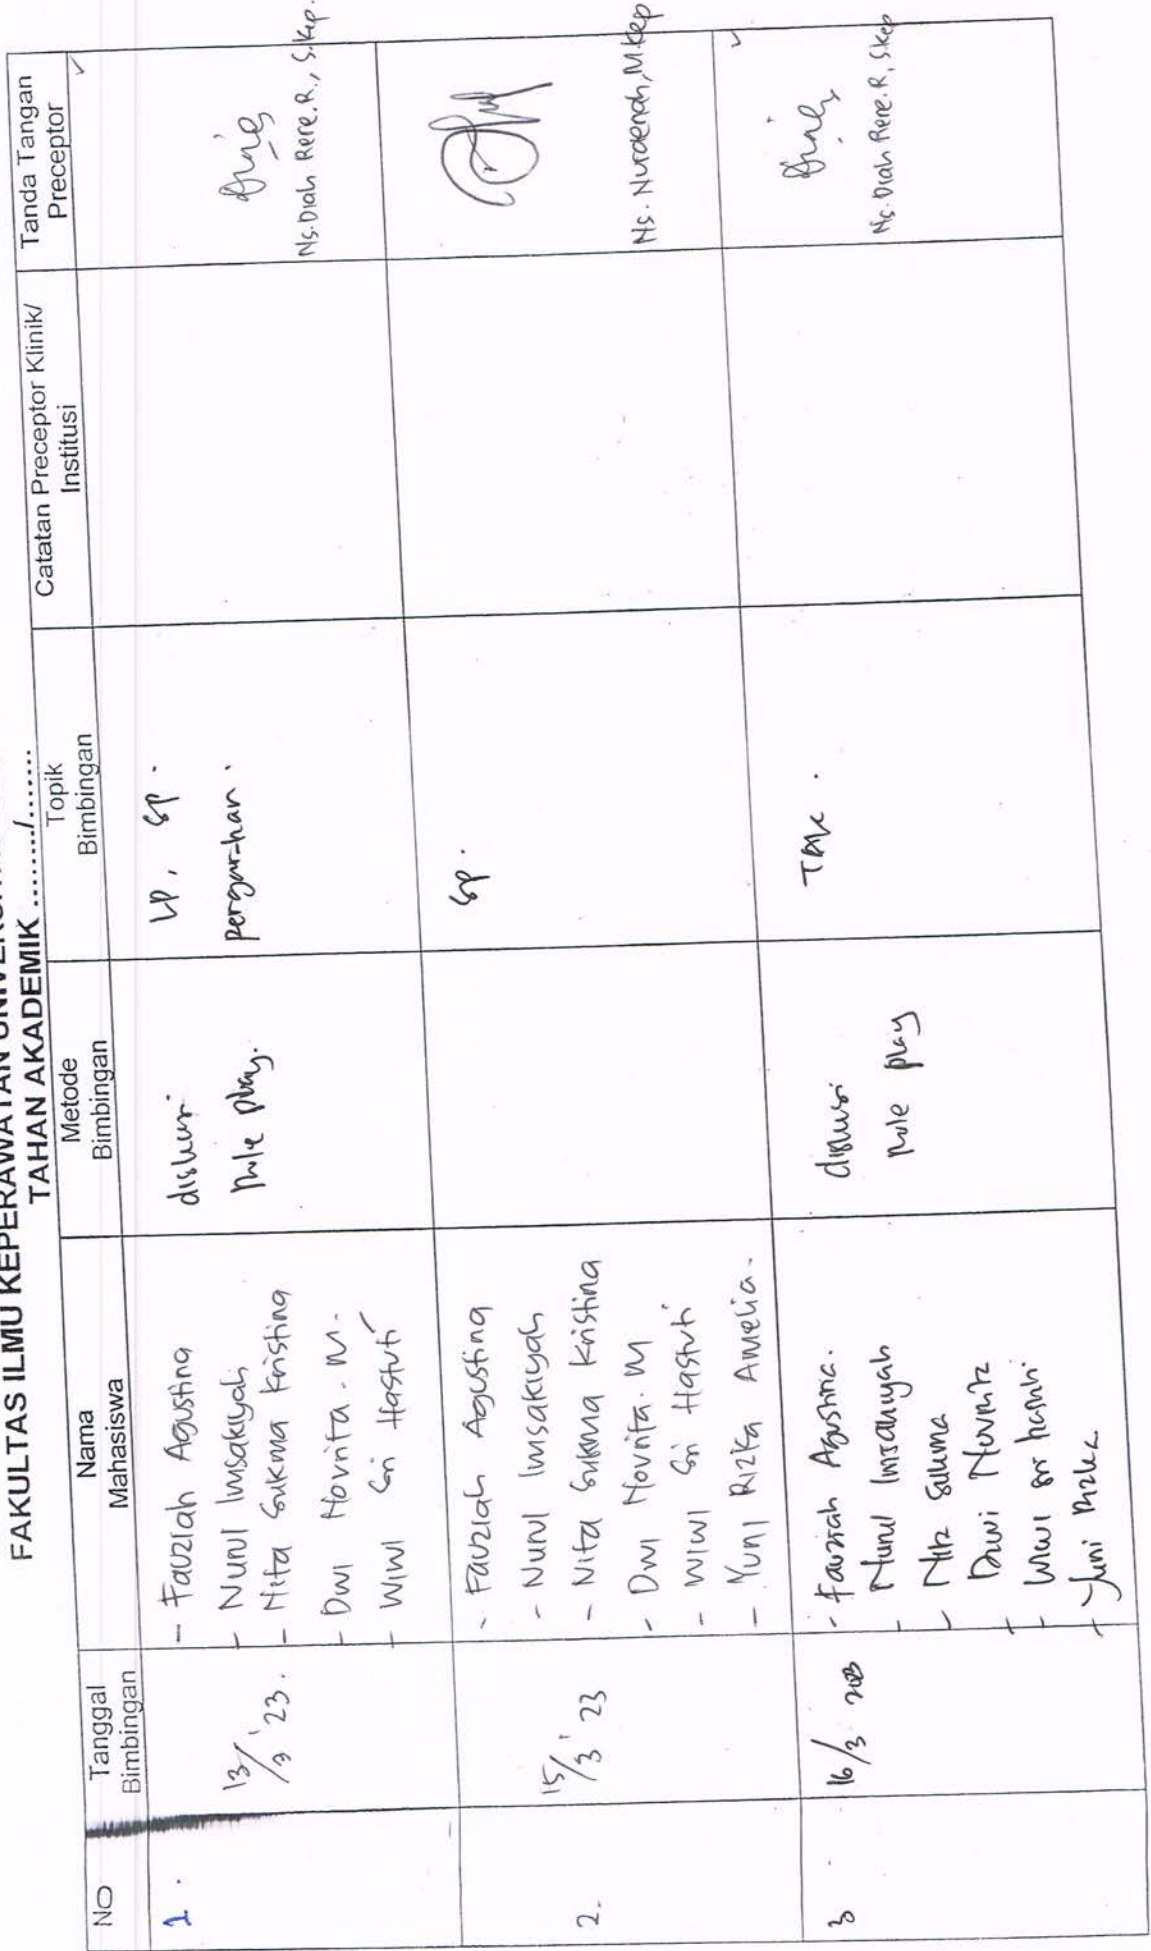 FAKULTAS ILMU KEPERAWATAN
TAHAN AKADEMIK ......../........
NO
Tanggal
Bimbingan
Nama
Mahasiswa
Metode
Bimbingan
Topik
Bimbingan
Catatan Preceptor Klinik/
Institusi
Tanda Tangan
Preceptor
1.
13/3 '23.
- Fauziah Agustina
- Nurul Imsakiyah
- Nita Sukma Kristina
- Dwi Novrita. M.
- Wiwi Sri Hastuti
diskusi
role play.
LP, SP.
pengarahan.
Ns. Diah Rere. R., S.Kep.
2.
15/3 '23
- Fauziah Agustina
- Nurul Imsakiyah
- Nita Sukma Kristina
- Dwi Novrita. M
- Wiwi Sri Hastuti
- Yuni Rizka Amelia.
SP.
Ns. Nuraenah, M.Kep
3
16/3 2023
- Fauziah Agustina.
- Nurul Imsakiyah
- Nita Sukma
- Dwi Novrita
- Wiwi Sri hastuti
- Yuni Rizka
diskusi
role play
TAK.
Ns. Diah Rere. R, S.Kep